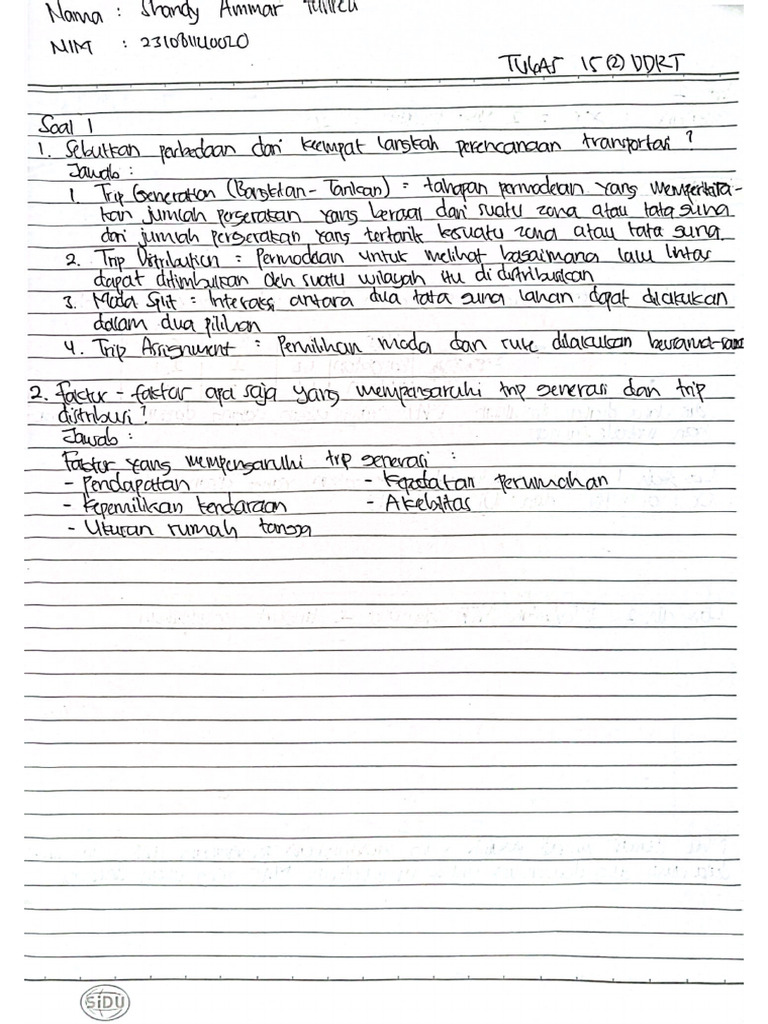 Nama : Shandy Ammar
NIM : 2310811240020
TUGAS 15 (2) DDRT
Soal 1
1. Sebutkan perbedaan dari keempat langkah perencanaan transportasi ?
Jawab :
1. Trip Generation (Bangkitan - Tarikan) = tahapan permodelan yang memperkira-
kan jumlah pergerakan yang berasal dari suatu zona atau tata guna
dari jumlah pergerakan yang tertarik kesuatu zona atau tata guna
2. Trip Distribution = Permodelan untuk melihat bagaimana lalu lintas
dapat ditimbulkan oleh suatu wilayah itu di distribusikan
3. Moda Split = Interaksi antara dua tata guna lahan dapat dilakukan
dalam dua pilihan
4. Trip Assignment = Pemilihan moda dan rute dilakukan bersama-sama
2. Faktor - faktor apa saja yang mempengaruhi trip generasi dan trip
distribusi ?
Jawab :
Faktor yang mempengaruhi trip generasi :
- Pendapatan - Kepadatan perumahan
- Kepemilikan kendaraan - Aksebilitas
- Ukuran rumah tangga
SiDU